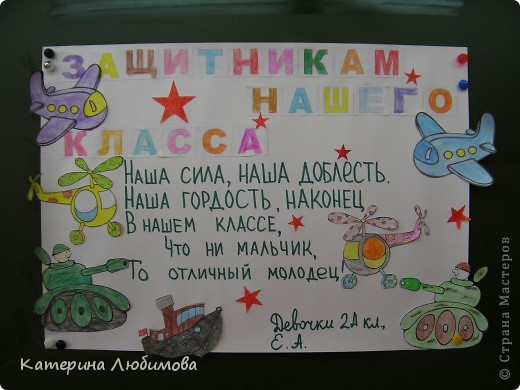 ЗАЩИТНИКАМ
НАШЕГО
КЛАССА
НАША СИЛА, НАША ДОБЛЕСТЬ.
НАША ГОРДОСТЬ, НАКОНЕЦ
В НАШЕМ КЛАССЕ,
ЧТО НИ МАЛЬЧИК,
ТО ОТЛИЧНЫЙ МОЛОДЕЦ!
Девочки 2А кл.,
Е.А.
Катерина Любимова
© Страна Мастеров